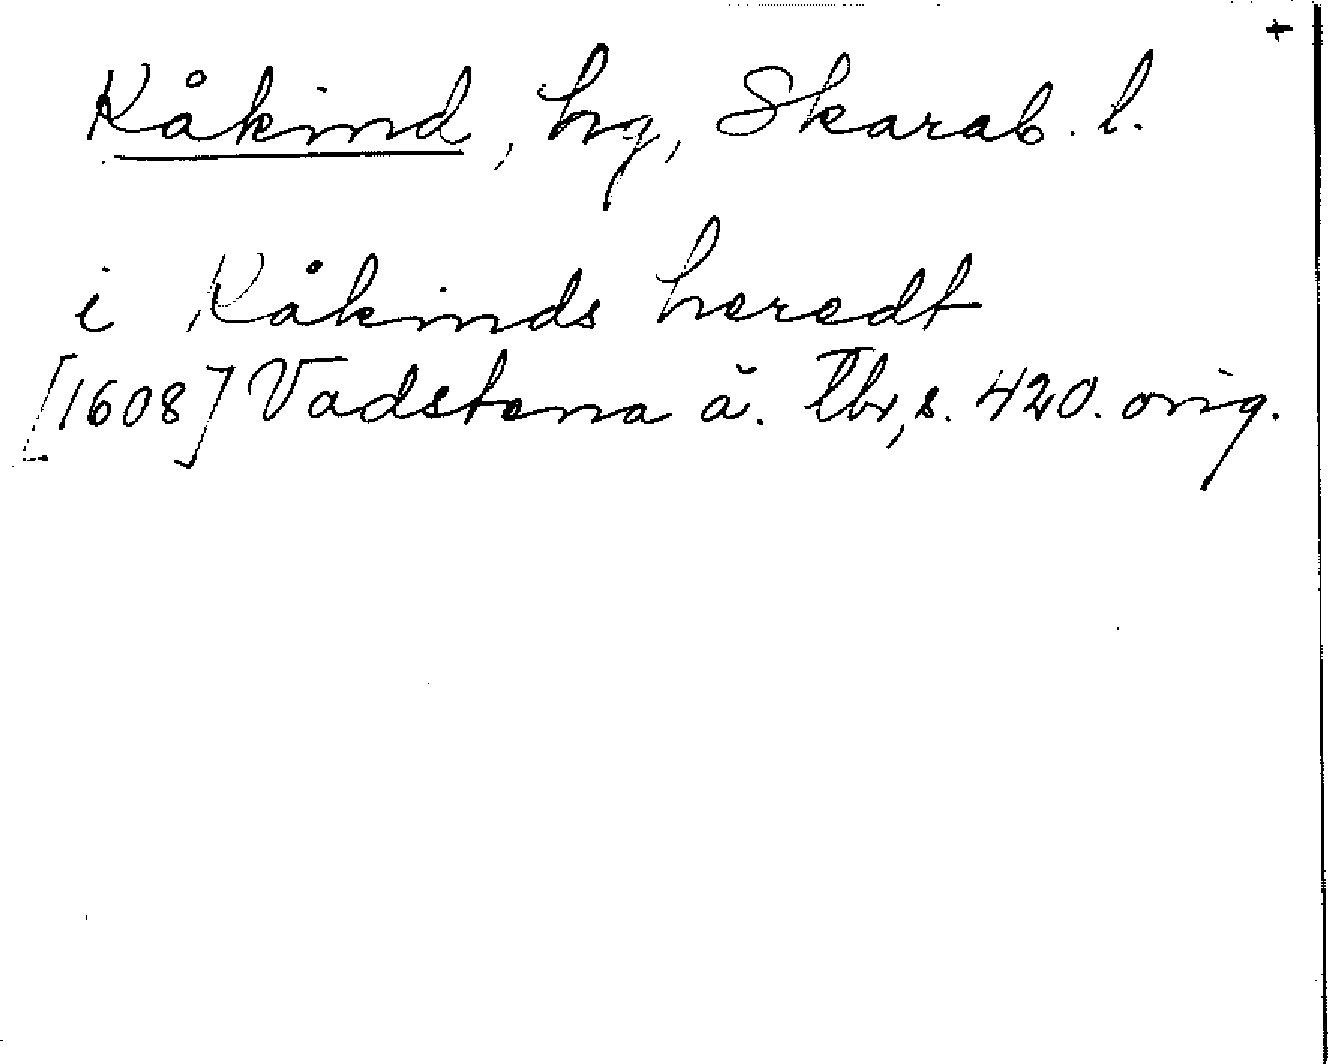 +
Kåkind, hg, Skarab. l.
i Kåkinds heredt
[1608] Vadstena ä. Tbr, s. 420. orig.